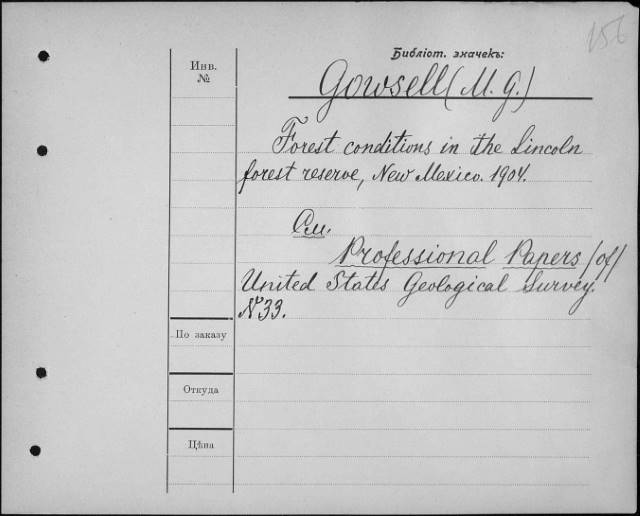 156
Библіот. значекъ:
Инв.
№
Gowsell (M. G.)
Forest conditions in the Lincoln
forest reserve, New Mexico. 1904.
См.
Professional Papers /of/
United States Geological Survey.
№ 33.
По заказу
Откуда
Цѣна